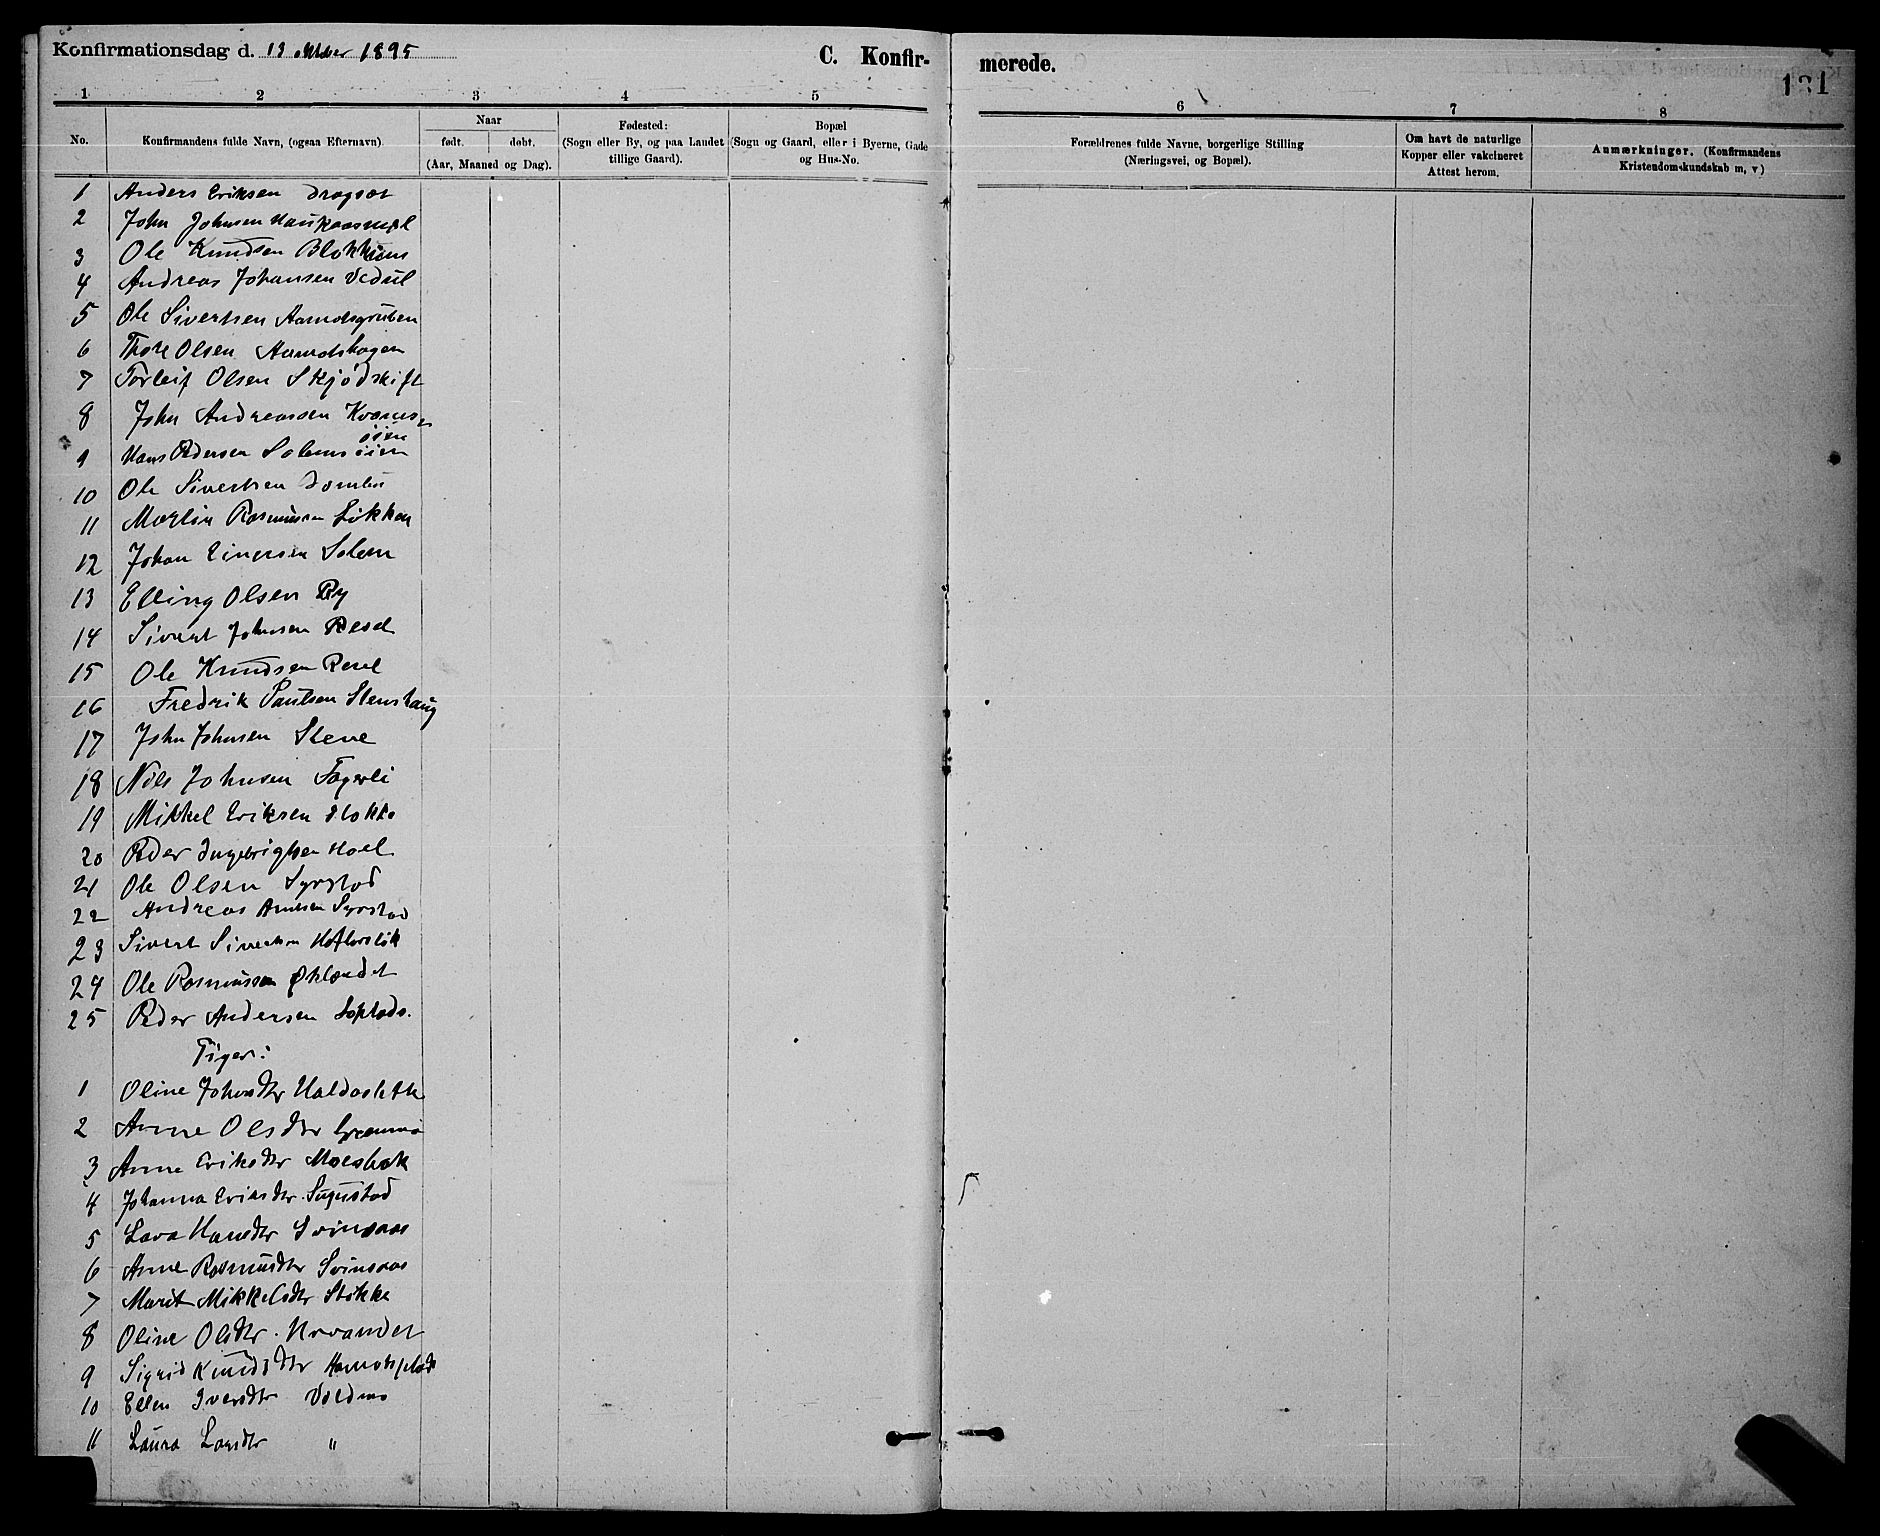 Konfirmationsdag d. 13 oktober 1895
C. Konfir-
merede.
131
1 2 3 4 5 6 7 8
No.
Konfirmandens fulde Navn, (ogsaa Efternavn).
Naar
født. døbt.
(Aar, Maaned og Dag).
Fødested:
(Sogn eller By, og paa Landet
tillige Gaard).
Bopæl
(Sogn og Gaard, eller i Byerne, Gade
og Hus-No.
Forældrenes fulde Navne, borgerlige Stilling
(Næringsvei, og Bopæl).
Om havt de naturlige
Kopper eller vakcineret
Attest herom.
Anmærkninger. (Konfirmandens
Kristendomskundskab m, v)
1 Anders Eriksen Dragset
2 John Johnsen Haukaasmæl
3 Ole Knudsen Blokhuus
4 Andreas Johansen Vedul
5 Ole Sivertsen Aamotsgruben
6 Thore Olsen Aamotshagen
7 Torleif Olsen Skjødskift
8 John Andreassen Kvames-
øien
9 Hans Pedersen Solemsøien
10 Ole Sivertsen Jomlei
11 Martin Rasmussen Løkken
12 Johan Einersen Solem
13 Elling Olsen Ry
14 Sivert Johnsen Resel
15 Ole Knudsen Resel
16 Fredrik Paulsen Stenshaug
17 John Johnsen Stene
18 Nils Johnsen Fagerli
19 Mikkel Eriksen Stokke
20 Peder Ingebrigtsen Hoel
21 Ole Olsen Syrstad
22 Andreas Arntsen Syrstad
23 Sivert Sivertsen
24 Ole Rasmussen
25 Peder Andersen
Piger:
1 Oline Johnsdtr Haldosletten
2 Anne Olsdtr Grønmo
3 Anne Eriksdtr Moesbak
4 Johanna Eriksdtr.
5 Lava Hansdtr Svinsaas
6 Anne Rasmusdtr Svinsaas
7 Marit Mikkelsdtr Stokke
8 Oline Olsdtr. Hrvandet
9 Sigrid Knudsdtr
10 Ellen Iversdtr Voldmo
11 Laura Larsdtr "